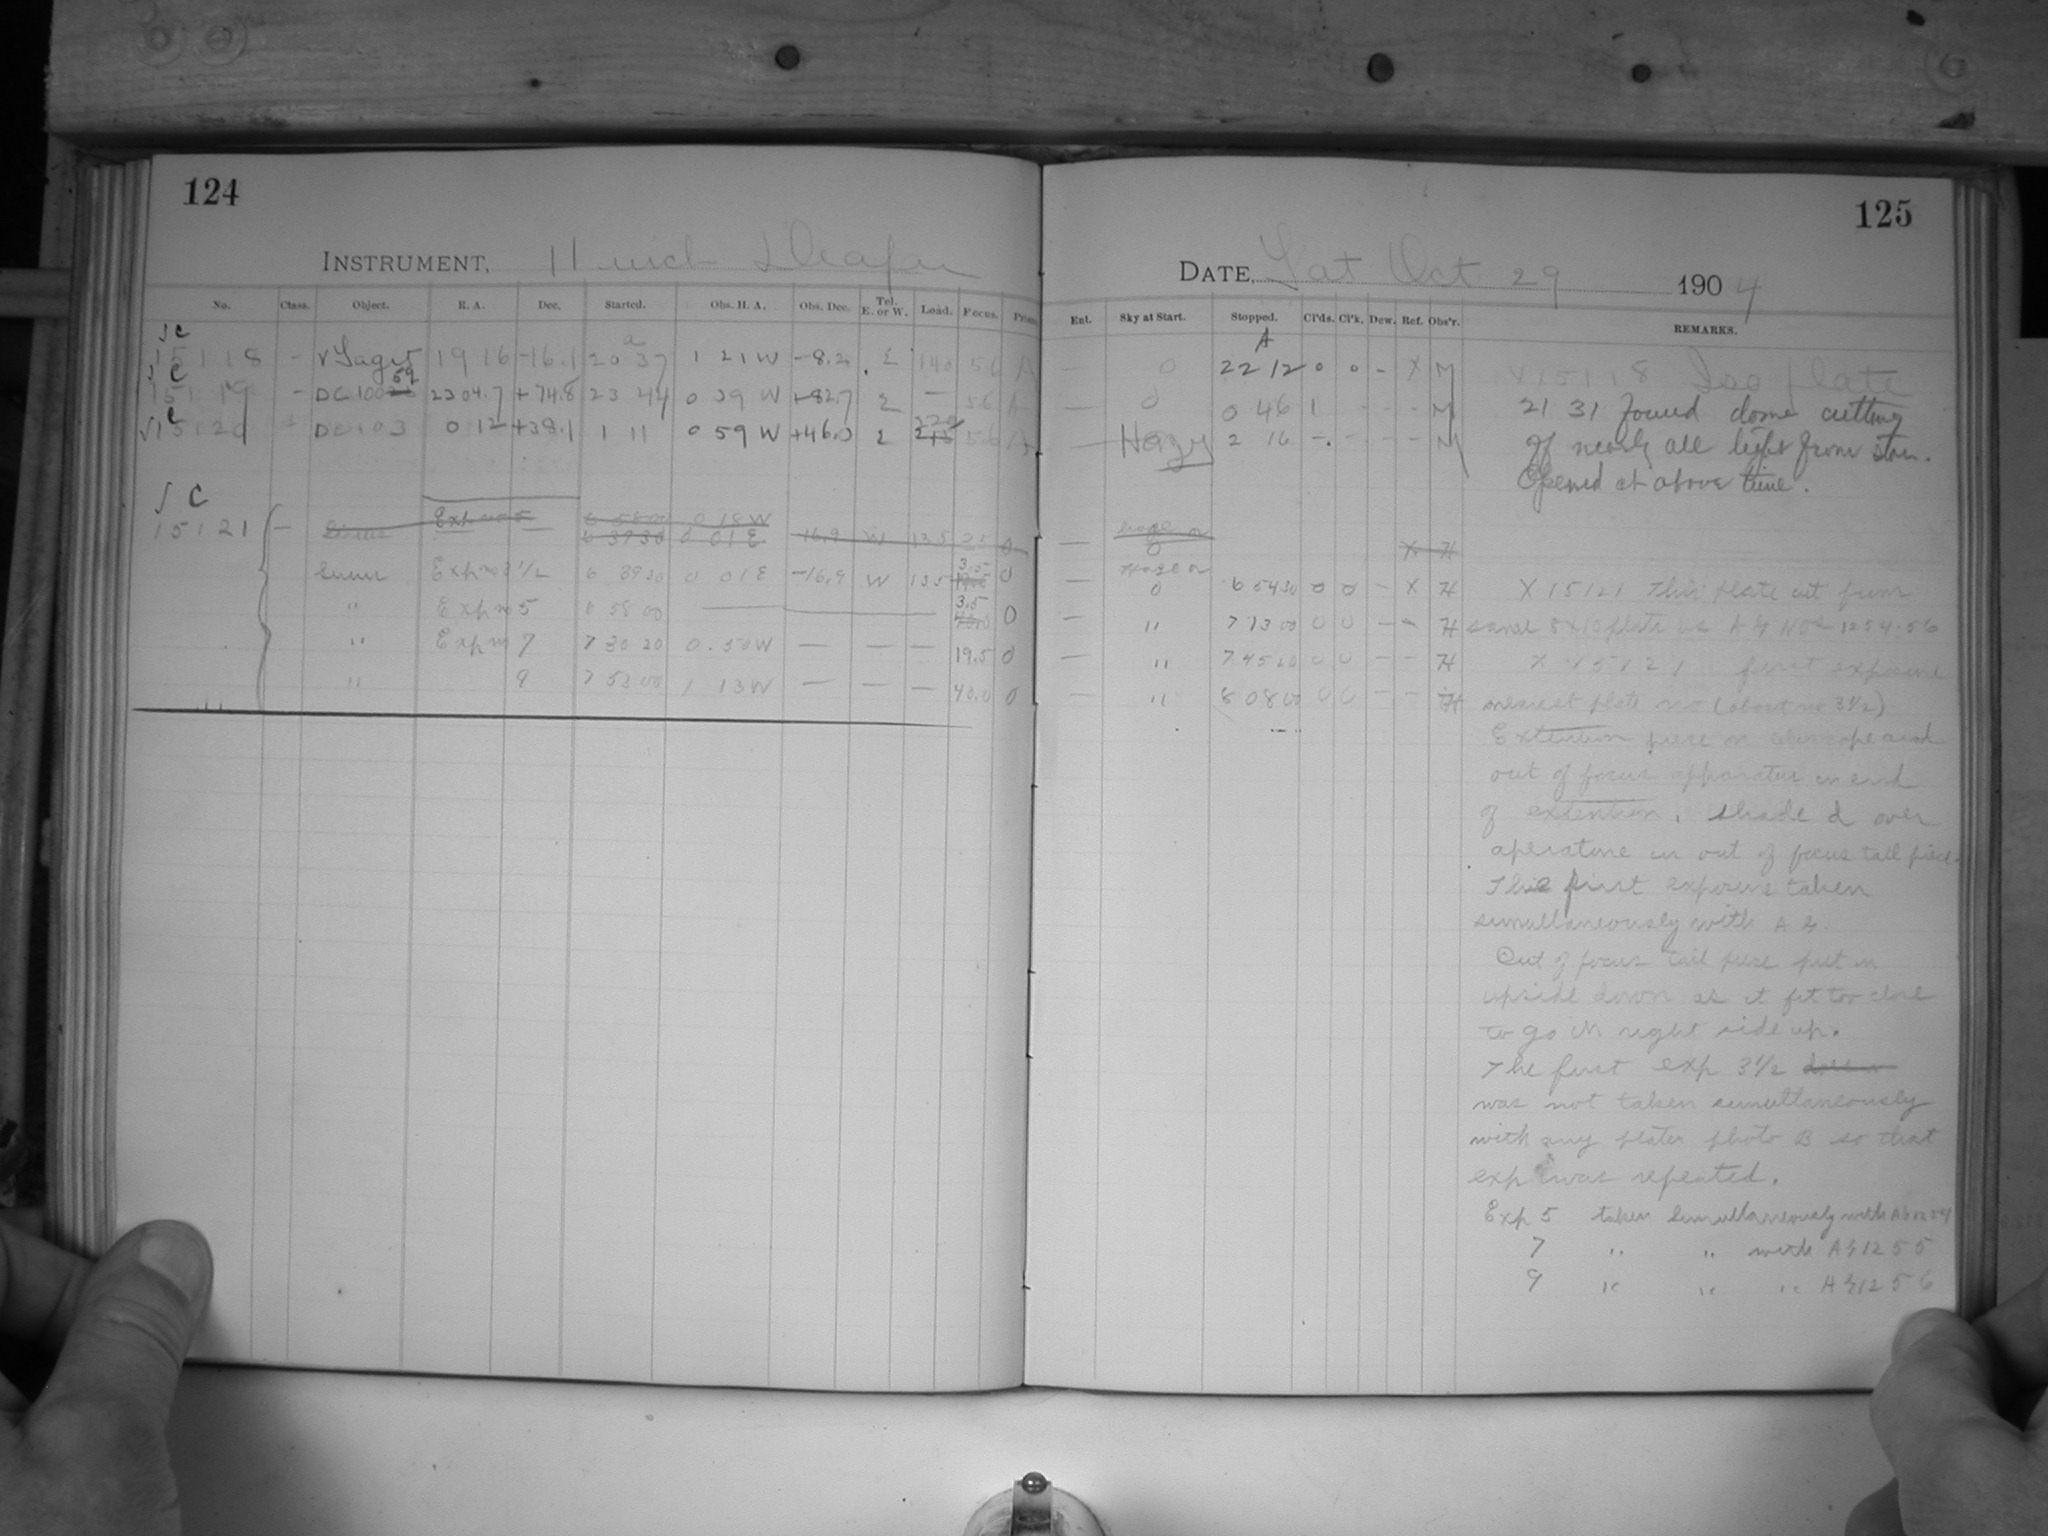 124
INSTRUMENT, 11 inch Draper
No. Class. Object. R. A. Dec. Started. Obs. H. A. Obs. Dec. Tel. E. or W. Load. Focus.
15118 - 19 16 -16.1 20 37 1 21 W -8.2 E 140 5.6 A
15119 - 23 04.7 +74.8 23 44 0 39 W +82.7 E - 5.6 A
15120 0 12 +38.1 1 11 0 59 W +46.0 E 5.6 A
15121 -
Exp no 3 1/2 6 39 30 0 01 E -16.9 W 135 3.5 0
" Exp no 5 6 58 00 3.5 0
" Exp no 7 7 30 20 0.50 W - - - 19.5 0
" 9 7 53 00 1 13 W - - - 40.0 0
125
DATE, Sat Oct 29 1904
Ent. Sky at Start. Stopped. Cl'ds. Cl'k. Dew. Ref. Obs'r. REMARKS.
- 0 22 12 0 0 - X M X 15118 Iso plate
- 0 0 46 1 - - - M 21 31 found dome cutting
- Hazy 2 16 - - - - M off nearly all light from star.
Opened at above time.
- 0 6 54 30 0 0 - X H X 15121 This plate cut from
- " 7 13 00 0 0 - - H same 8x10 plate as A G Nos 1254-56
- " 7 45 20 0 0 - - H X 15121 first exposure
- " 8 08 00 0 0 - - H nearest plate no (about no 3 1/2)
Extention piece on telescope and
out of focus apparatus in end
of extention. Shade d over
aperature in out of focus tail piece.
This first exposure taken
simultaneously with A G.
Out of focus tail piece put in
upside down as it fit too close
to go in right side up.
The first exp 3 1/2
was not taken simultaneously
with any plates photo B so that
exp was repeated.
Exp 5 taken simultaneously with AG 1254
7 " " with AG 1255
9 " " " AG 1256